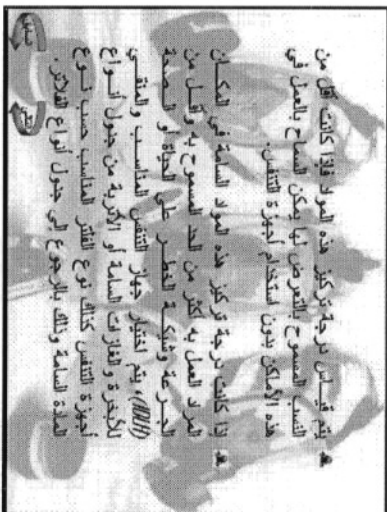 يتم قياس درجة تركيز هذه المواد فإذا كانت أقل من
النسب المسموح بالتعرض لها يمكن السماح بالعمل في
هذه الأماكن بدون استخدام أجهزة التنفس.
إذا كانت درجة تركيز هذه المواد السامة في المكان
المراد العمل به أكثر من الحد المسموح به وأقل من
الجرعة وشيكة الخطر على الحياة أو الصحة
(IDLH) يتم اختيار جهاز التنفس المناسب والمنقي
للأبخرة والغازات السامة أو الأتربة من جدول أنواع
أجهزة التنفس كذلك نوع الفلتر المناسب حسب نوع
المادة السامة وذلك بالرجوع إلى جدول أنواع الفلاتر.